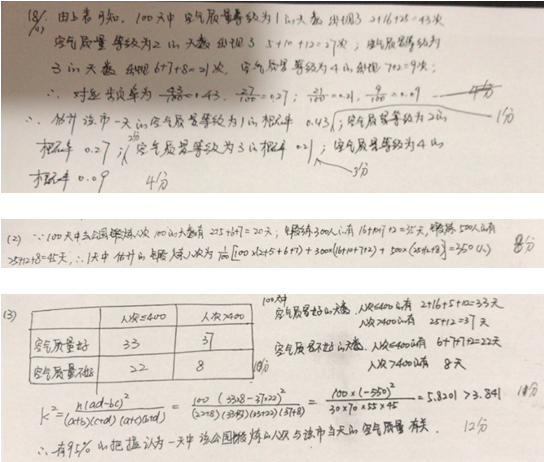 18/ (1) 由上表可知，100天中空气质量等级为1的天数出现了2+16+25=43次
空气质量等级为2的天数出现了5+10+12=27次；空气质量等级为
3的天数出现6+7+8=21次，空气质量等级为4的出现7+2=9次；
∴ 对应频率为 43/100=0.43，27/100=0.27；21/100=0.21，9/100=0.09 4分
∴ 估计该市一天的空气质量等级为1的概率 0.43；空气质量等级为2的 1分
概率 0.27；2分 空气质量等级为3的概率 0.21；空气质量等级为4的
概率 0.09 4分 3分
(2) ∵100天中去公园锻炼人次100的天数有2+5+6+7=20天；锻炼300人的有16+10+7+2=35天，锻炼500人的有
25+12+8=45天，∴1天中估计的锻炼人次为 1/100[100×(2+5+6+7)+300×(16+10+7+2)+500×(25+12+8)]=350(人) 8分
(3) 人次≤400 人次>400
空气质量好 33 37
空气质量不好 22 8 10分
100天中
空气质量好的天数，人次≤400的有 2+16+5+10=33天
人次>400的有 25+12=37天
空气质量不好的天数，人次≤400的有 6+7+7+2=22天
人次>400的有 8天
K²=n(ad-bc)²/(a+b)(c+d)(a+c)(b+d)=100(33×8-37×22)²/(22+8)(33+37)(33+22)(37+8)=100×(-550)²/30×70×55×45=5.8201>3.841 11分
∴ 有95%的把握认为一天中该公园锻炼的人次与该市当天的空气质量有关. 12分